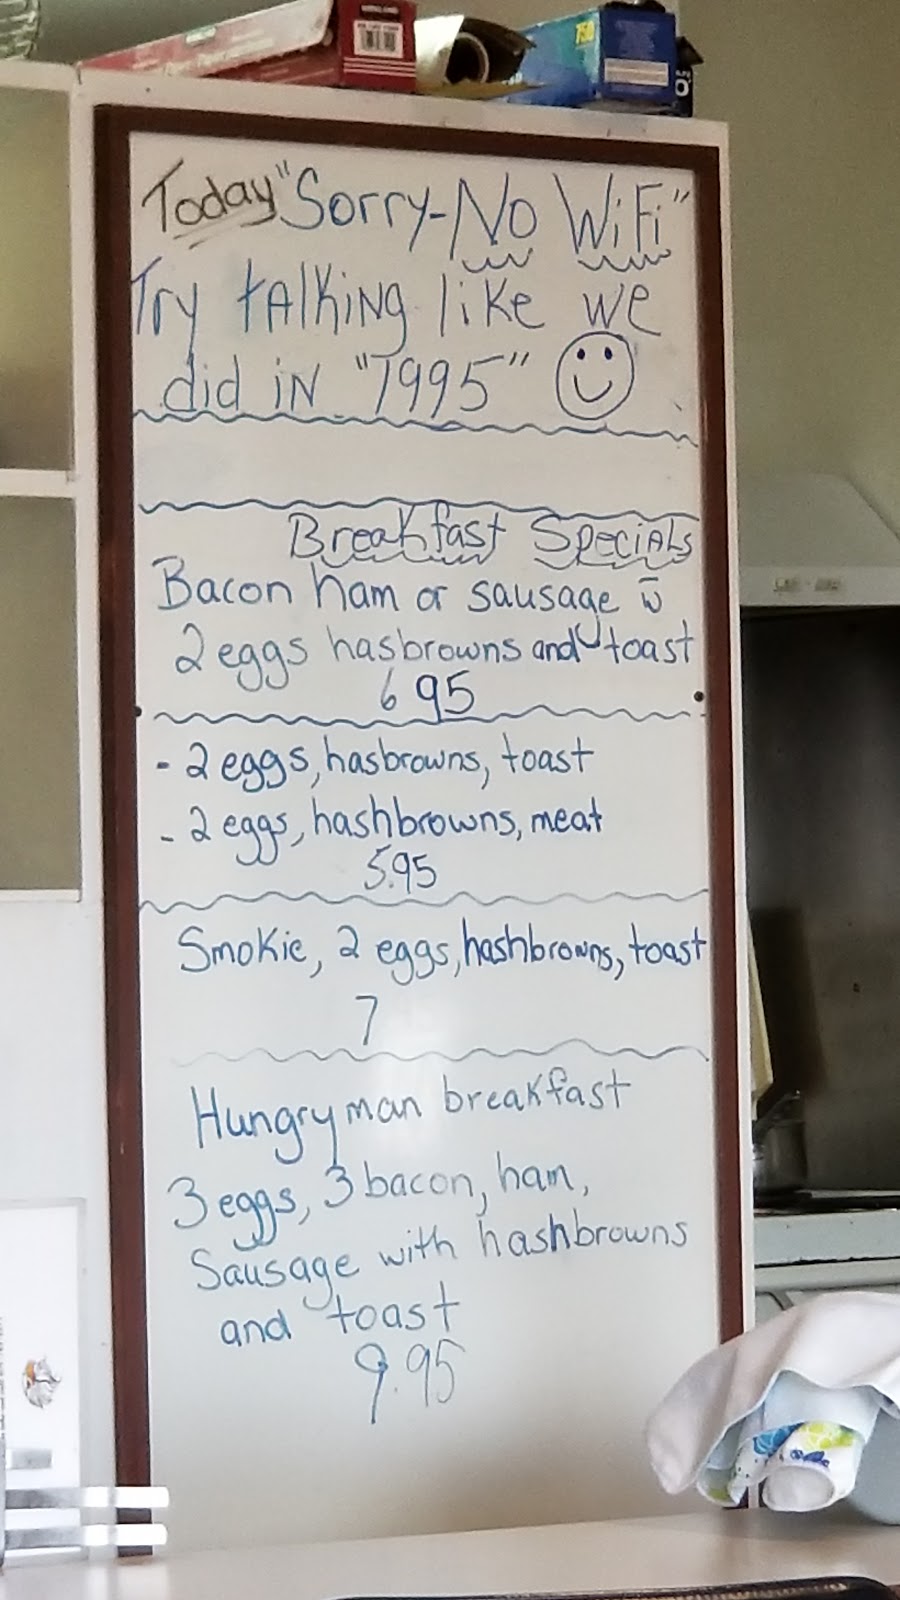 KIRKLAND
750
Today "Sorry-No WiFi"
Try talking like we
did in "1995"
Breakfast Specials
Bacon ham or sausage w̄
2 eggs hasbrowns and toast
6 95
- 2 eggs, hasbrowns, toast
- 2 eggs, hashbrowns, meat
5.95
Smokie, 2 eggs, hashbrowns, toast
7
Hungryman breakfast
3 eggs, 3 bacon, ham,
Sausage with hashbrowns
and toast
9.95